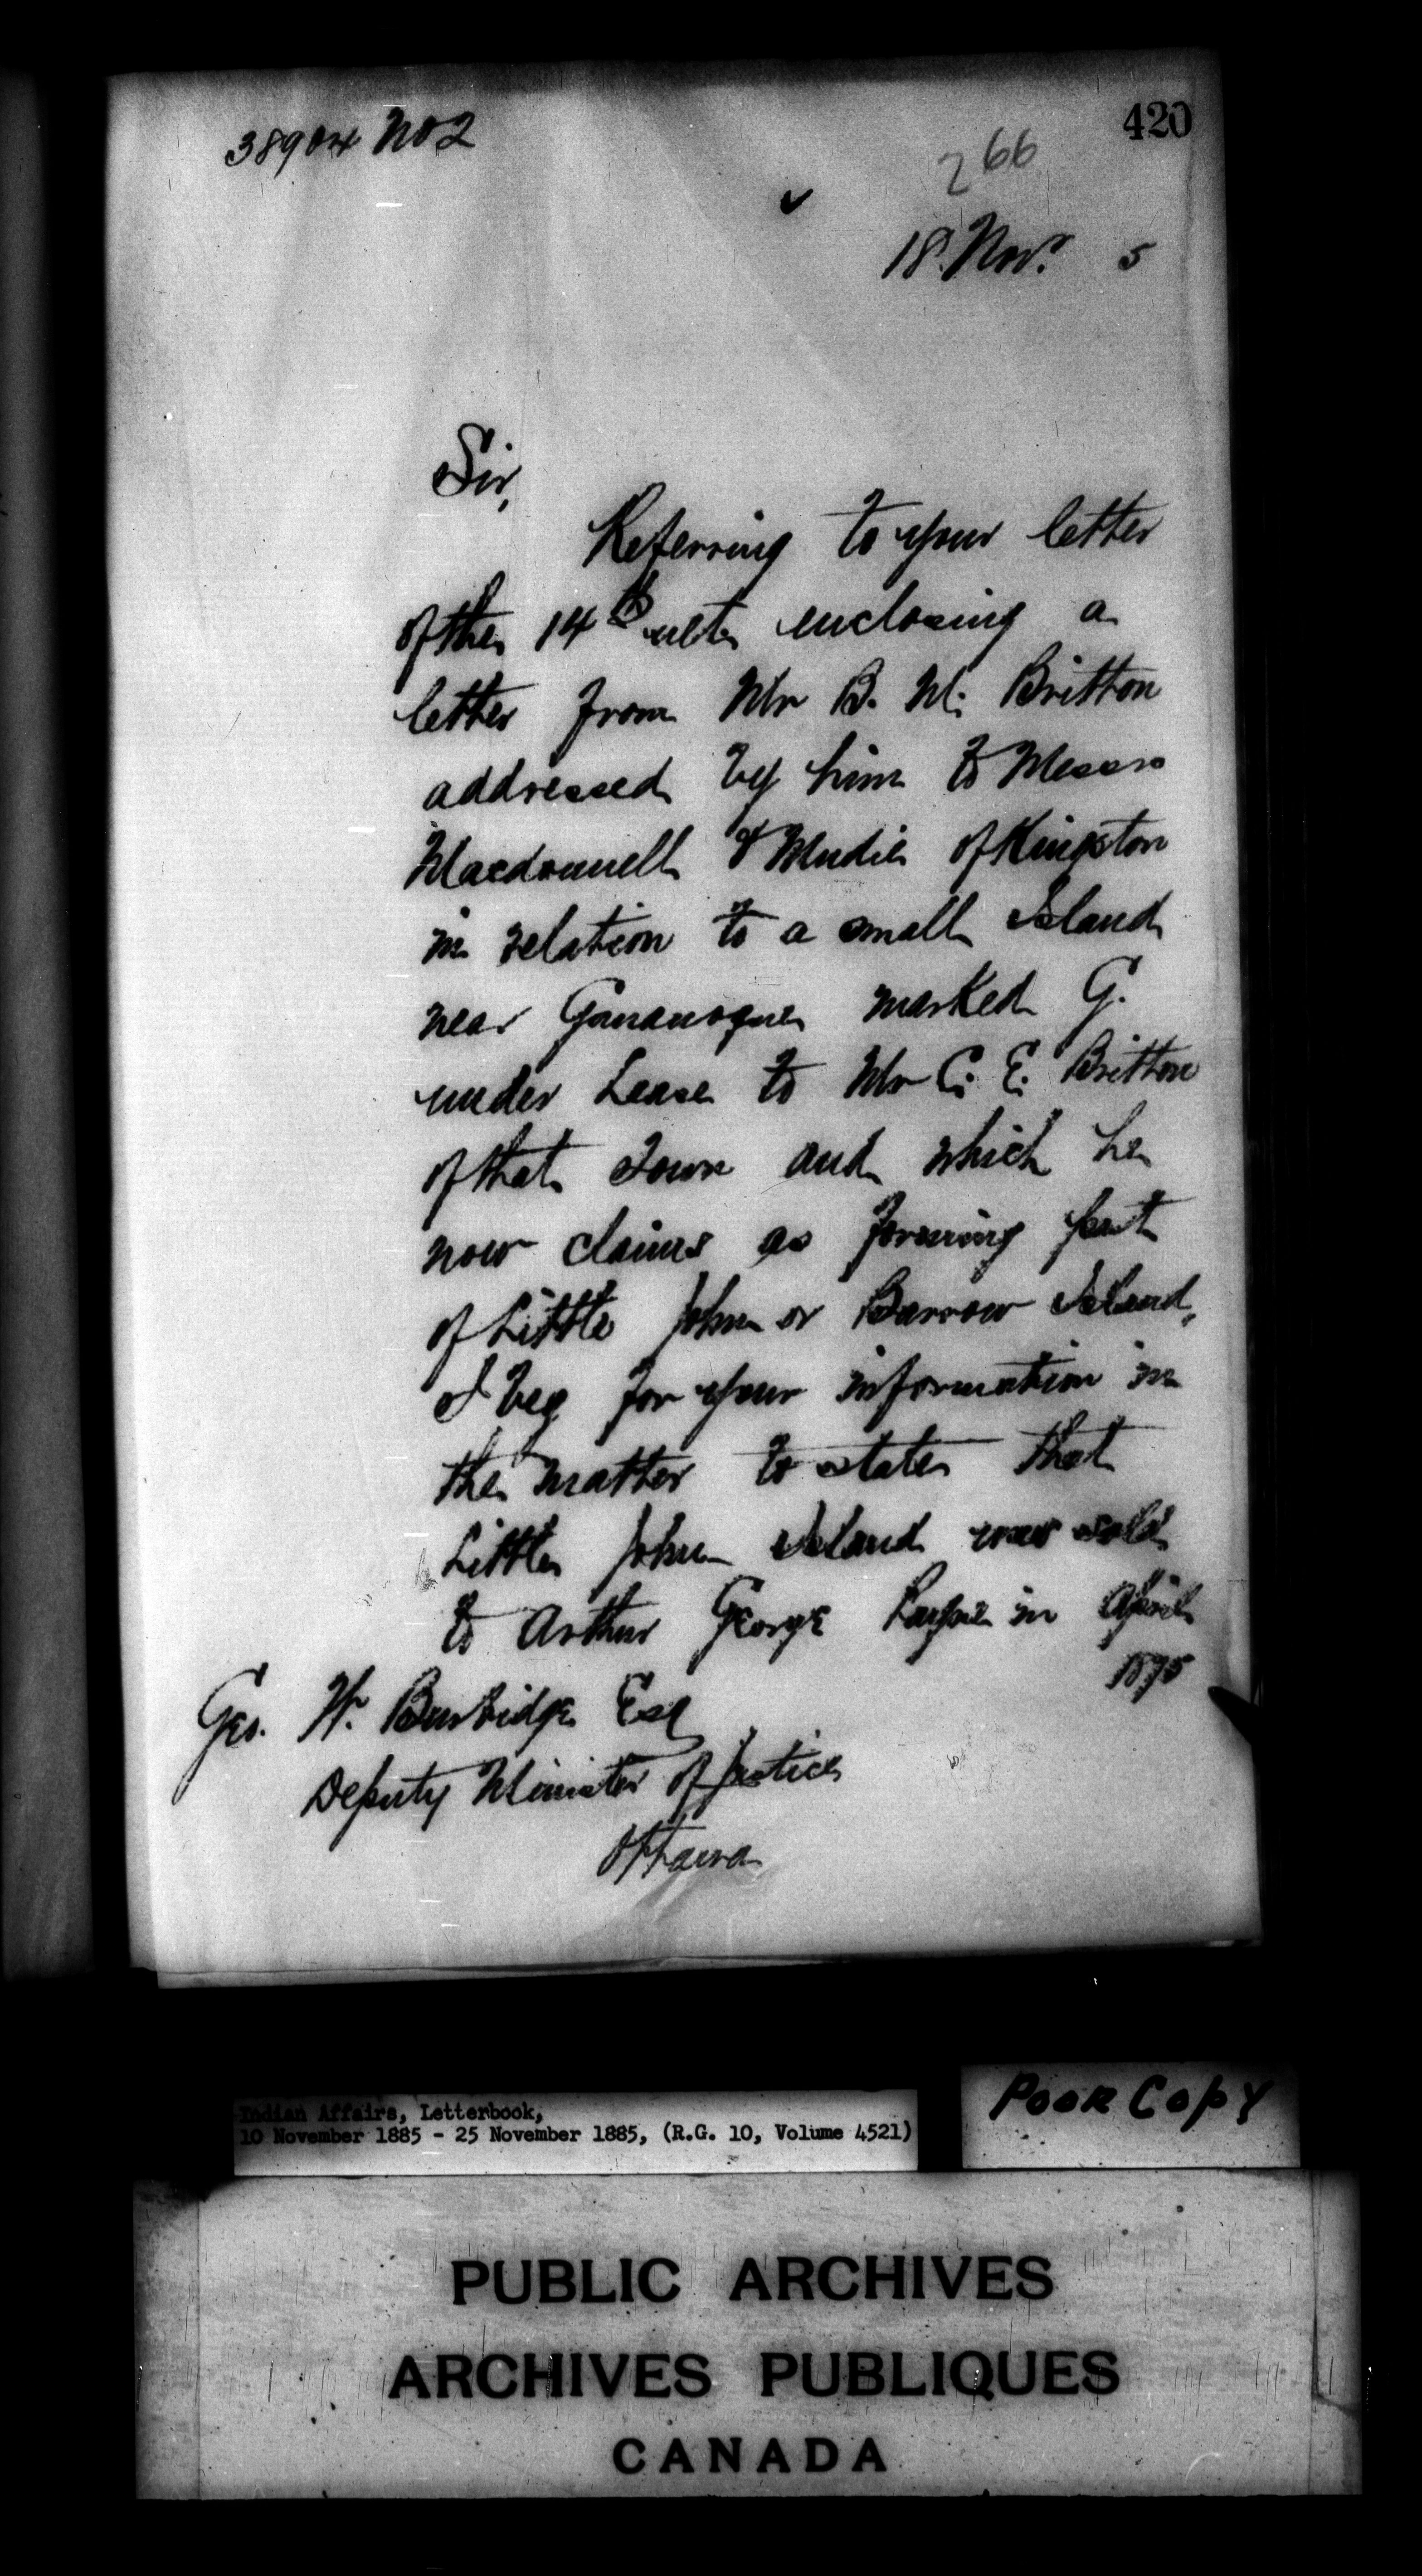 38904 No 2
420
266
18. Nov. 5
Sir,
Referring to your letter
of the 14th ulto enclosing a
letter from Mr B. M. Britton
addressed by him to Messrs
Macdonnell & Mudie of Kingston
in relation to a small Island
near Gananoque marked G.
under Lease to Mr C. E. Britton
of that Town and which he
now claims as forming part
of Little John or Barrow Island,
I beg for your information in
the matter to state that
Little John Island was sold
to Arthur George in April
1875
Geo. W. Burbidge Esq
Deputy Minister of Justice
Ottawa
Poor Copy
Indian Affairs, Letterbook,
10 November 1885 - 25 November 1885, (R.G. 10, Volume 4521)
PUBLIC ARCHIVES
ARCHIVES PUBLIQUES
CANADA